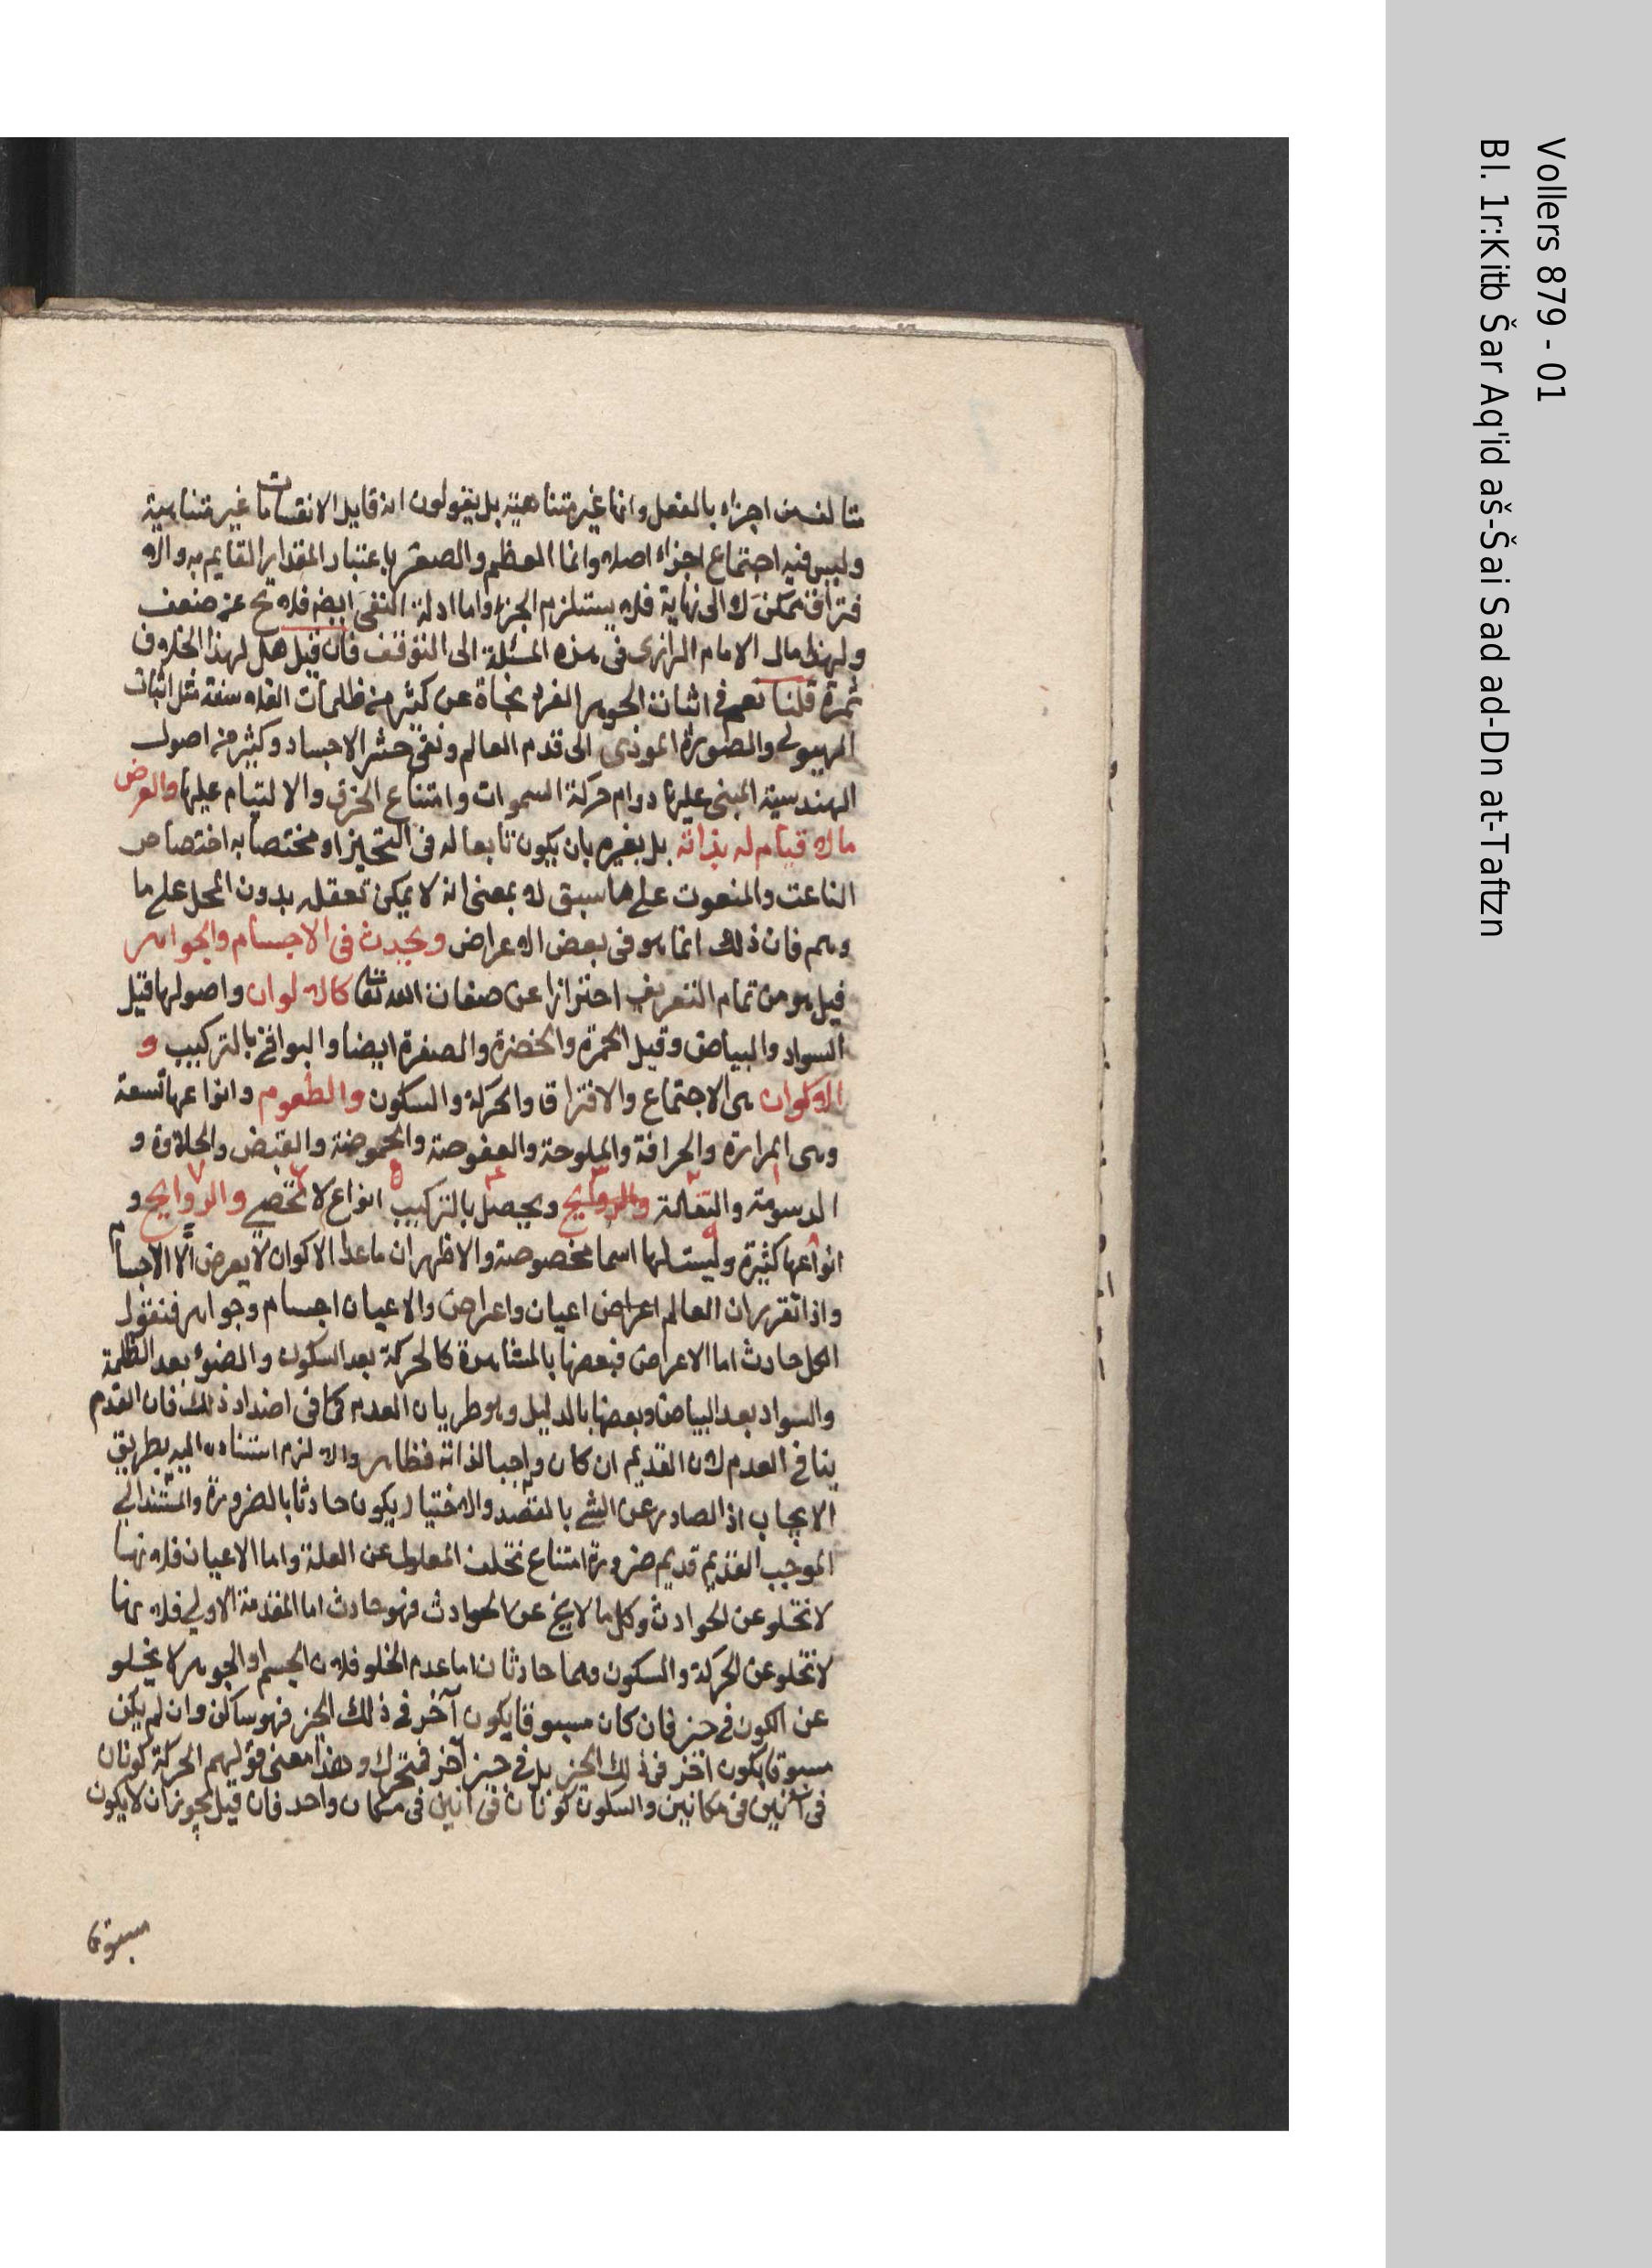 متالف من اجزاء بالفعل وانها غير متناهية بل يقولون انه قابل الانقسامات غير متناهية
وليس فيه اجتماع اجزاء اصلا وانما العظم والصغر باعتبار المقدار القايم به والا
فتراق ممكن لا الى نهاية فلا يستلزم الجزء واما ادلة النفى ايضه فلا تخ عن ضعف
ولهذا مال الامام الرازى فى هذه المسئلة الى التوقف فان قيل هل لهذا الخلاف
ثمرة قلنا نعم فى اثبات الجوهر الفرد نجاة عن كثير من ظلمات الفلاسفة مثل اثبات
الهيولى والصورة المؤدى الى قدم العالم ونفى حشر الاجساد وكثير من اصول
الهندسية المبنى عليها دوام حركة السموات وامتناع الخرق والالتيام عليها والعرض
مالا قيام له بذاته بل بغيره بان يكون تابعا له فى التحيز او مختصا به اختصاص
الناعت والمنعوت على ما سبق لا بمعنى انه لا يمكن تعقله بدون المحل على ما
وهم فان ذلك انما هو فى بعض الاعراض ويحدث فى الاجسام والجواهر
قيل هو من تمام التعريف احترازا عن صفات الله تعا كالالوان واصولها قيل
السواد والبياض وقيل الحمرة والخضرة والصفرة ايضا والبواقى بالتركيب و
الاكوان هى الاجتماع والافتراق والحركة والسكون والطعوم وانواعها تسعة
وهى المرارة والحرافة والملوحة والعفوصة والحموضة والقبض والحلاوة و
الدسومة والتفاهة والروايح ويحصل بالتركيب انواع لا تحصى والروايح و
انواعها كثيرة وليست لها اسما مخصوصة والاظهر ان ماعدا الاكوان لا يعرض الا الاجسام
واذا تقرر ان العالم اعراض اعيان واعراض والاعيان اجسام وجواهر فنقول
الكل حادث اما الاعراض فبعضها بالمشاهدة كالحركة بعد السكون والضوء بعد الظلمة
والسواد بعد البياض وبعضها بالدليل وهو طريان العدم كما فى اضداد ذلك فان القدم
ينافى العدم لان القديم ان كان واجبا لذاته فظاهر والا لزم استناده اليه بطريق
الايجاب اذ الصادر عن الشى بالقصد والاختيار يكون حادثا بالضرورة والمستند الى
الموجب القديم قديم ضرورة امتناع تخلف المعلول عن العلة واما الاعيان فلانها
لا تخلو عن الحوادث وكل ما لا يخ عن الحوادث فهو حادث اما المقدمة الاولى فلانها
لا تخلو عن الحركة والسكون وهما حادثان اما عدم الخلو فلان الجسم او الجوهر لا يخلو
عن الكون فى حيز فان كان مسبوقا يكون آخر فى ذلك الحيز فهو ساكن وان لم يكن
مسبوقا بكون آخر فى ذلك الحيز بل فى حيز آخر فمتحرك وهذا معنى قولهم الحركة كونان
فى آنين فى مكانين والسكون كونان فى آنين فى مكان واحد فان قيل يجوز ان لا يكون
مسبوقا
Vollers 879 - 01
Bl. 1r:Kitb Šar Aq'id aš-Šai Sad ad-Dn at-Taftzn